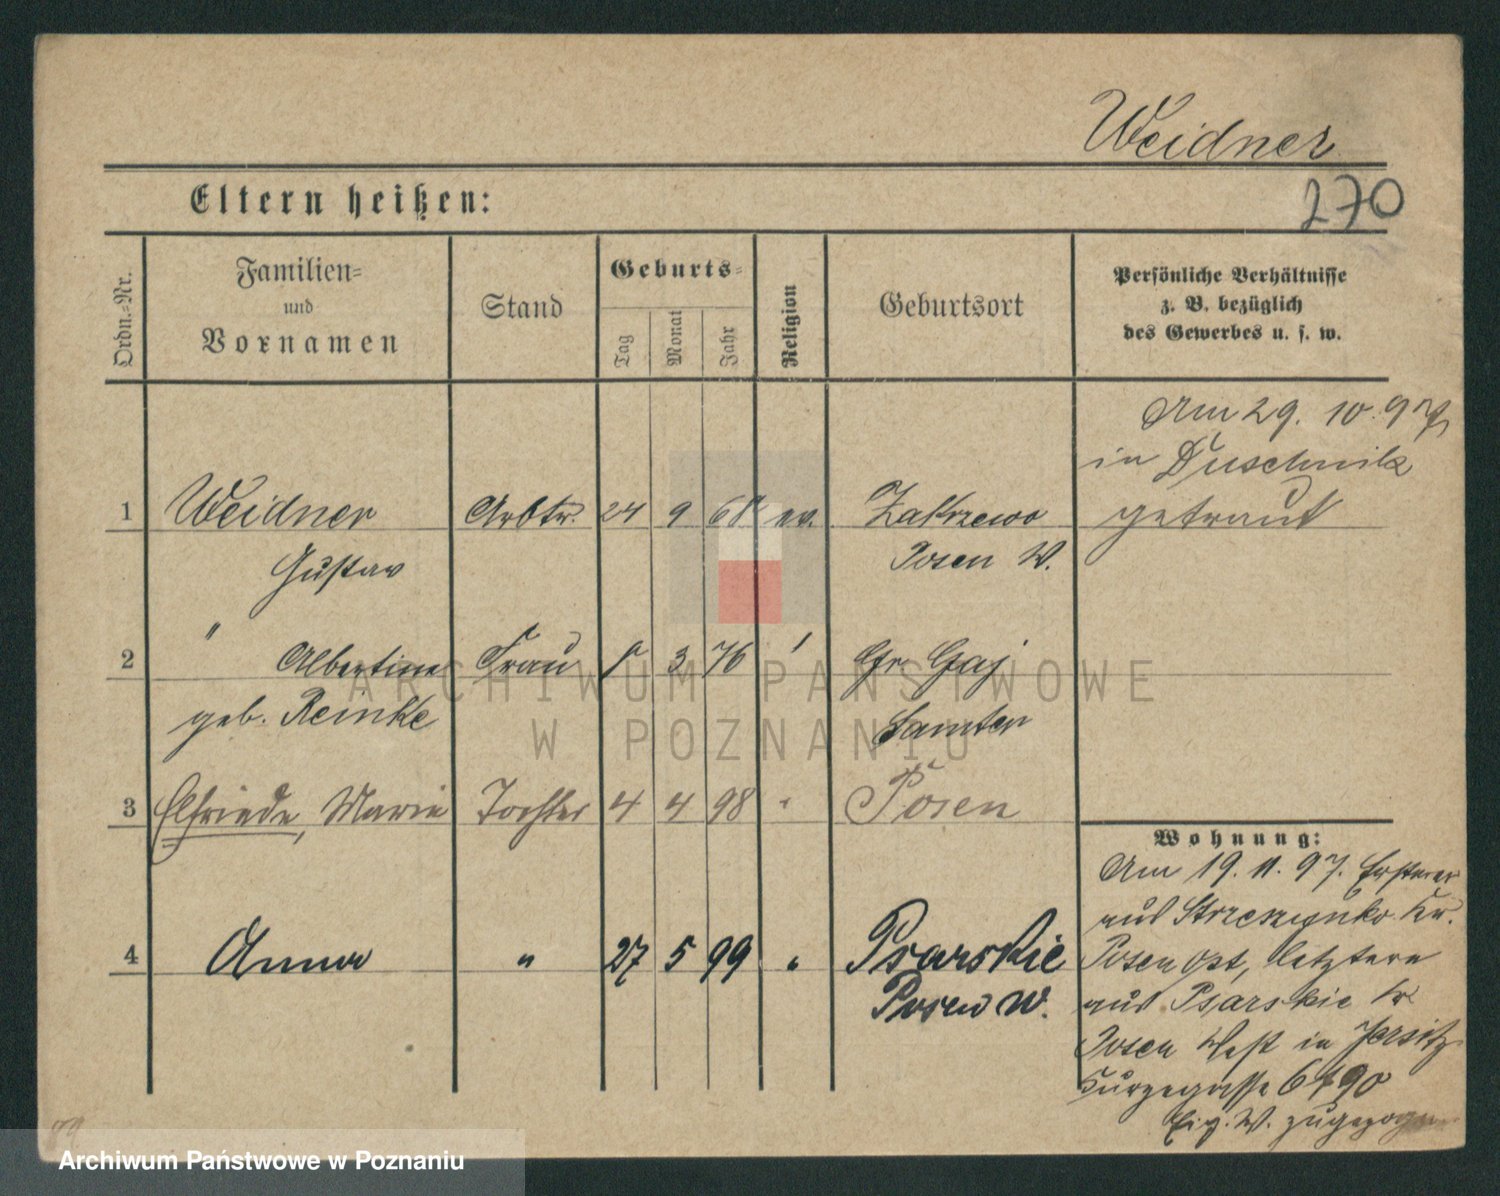 Weidner
270
Eltern heißen:
Ordn.-Nr.
Familien-
und
Vornamen
Stand
Geburts-
Tag
Monat
Jahr
Religion
Geburtsort
Persönliche Verhältnisse
z. B. bezüglich
des Gewerbes u. s. w.
Am 29. 10. 97
in Duschnik
getraut
1 Weidner Arbtr. 24 9 68 ev. Zakrzewo
Gustav Posen W.
2 " Albertine Frau 3 76 Gr Gaj
geb. Reinke Samter
3 Elfriede, Marie Tochter 4 4 98 " Posen
4 Anna " 27 5 99 " Psarskie
Posen W.
Wohnung:
Am 19. 11. 97. Ersterer
aus Strzeszynko Kr.
Posen Ost, letztere
aus Psarskie Kr
Posen West in Jersitz
Kurzegasse
W. zugezogen
ARCHIWUM PAŃSTWOWE
W POZNANIU
Archiwum Państwowe w Poznaniu